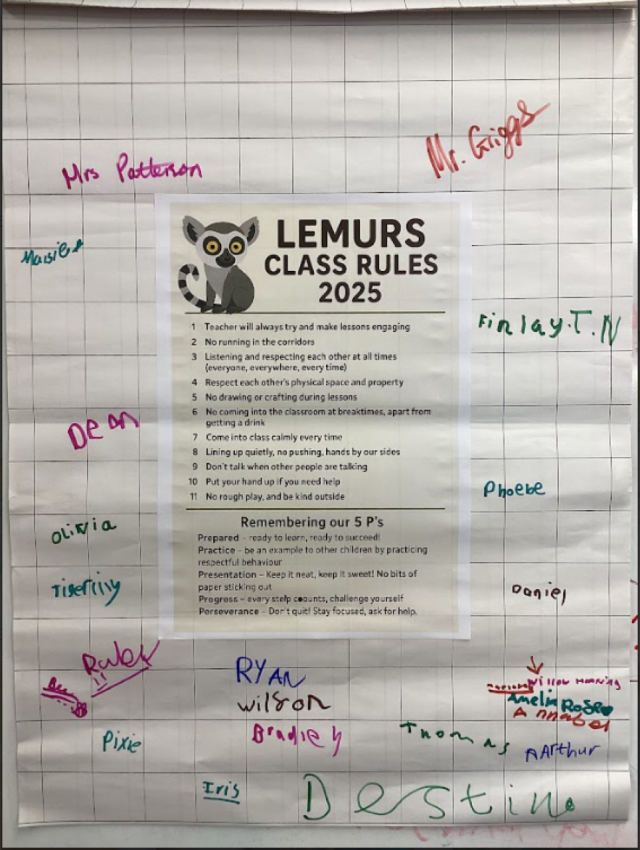 Mr. Griggs
Mrs Patterson
Maisie
LEMURS
CLASS RULES
2025
1 Teacher will always try and make lessons engaging
2 No running in the corridors
3 Listening and respecting each other at all times
(everyone, everywhere, every time)
4 Respect each other's physical space and property
5 No drawing or crafting during lessons
6 No coming into the classroom at breaktimes, apart from
getting a drink
7 Come into class calmly every time
8 Lining up quietly, no pushing, hands by our sides
9 Don't talk when other people are talking
10 Put your hand up if you need help
11 No rough play, and be kind outside
Remembering our 5 P's
Prepared – ready to learn, ready to succeed!
Practice – be an example to other children by practicing
respectful behaviour
Presentation – Keep it neat, keep it sweet! No bits of
paper sticking out
Progress – every stelp counts, challenge yourself
Perseverance – Don't quit! Stay focused, ask for help.
Finlay.T.N
Dean
Phoebe
Olivia
Daniel
RYAN
wilson
Bradley
Willow Manning
Amelia Rose
Annabel
Thomas
AArthur
Pixie
Iris
Destin